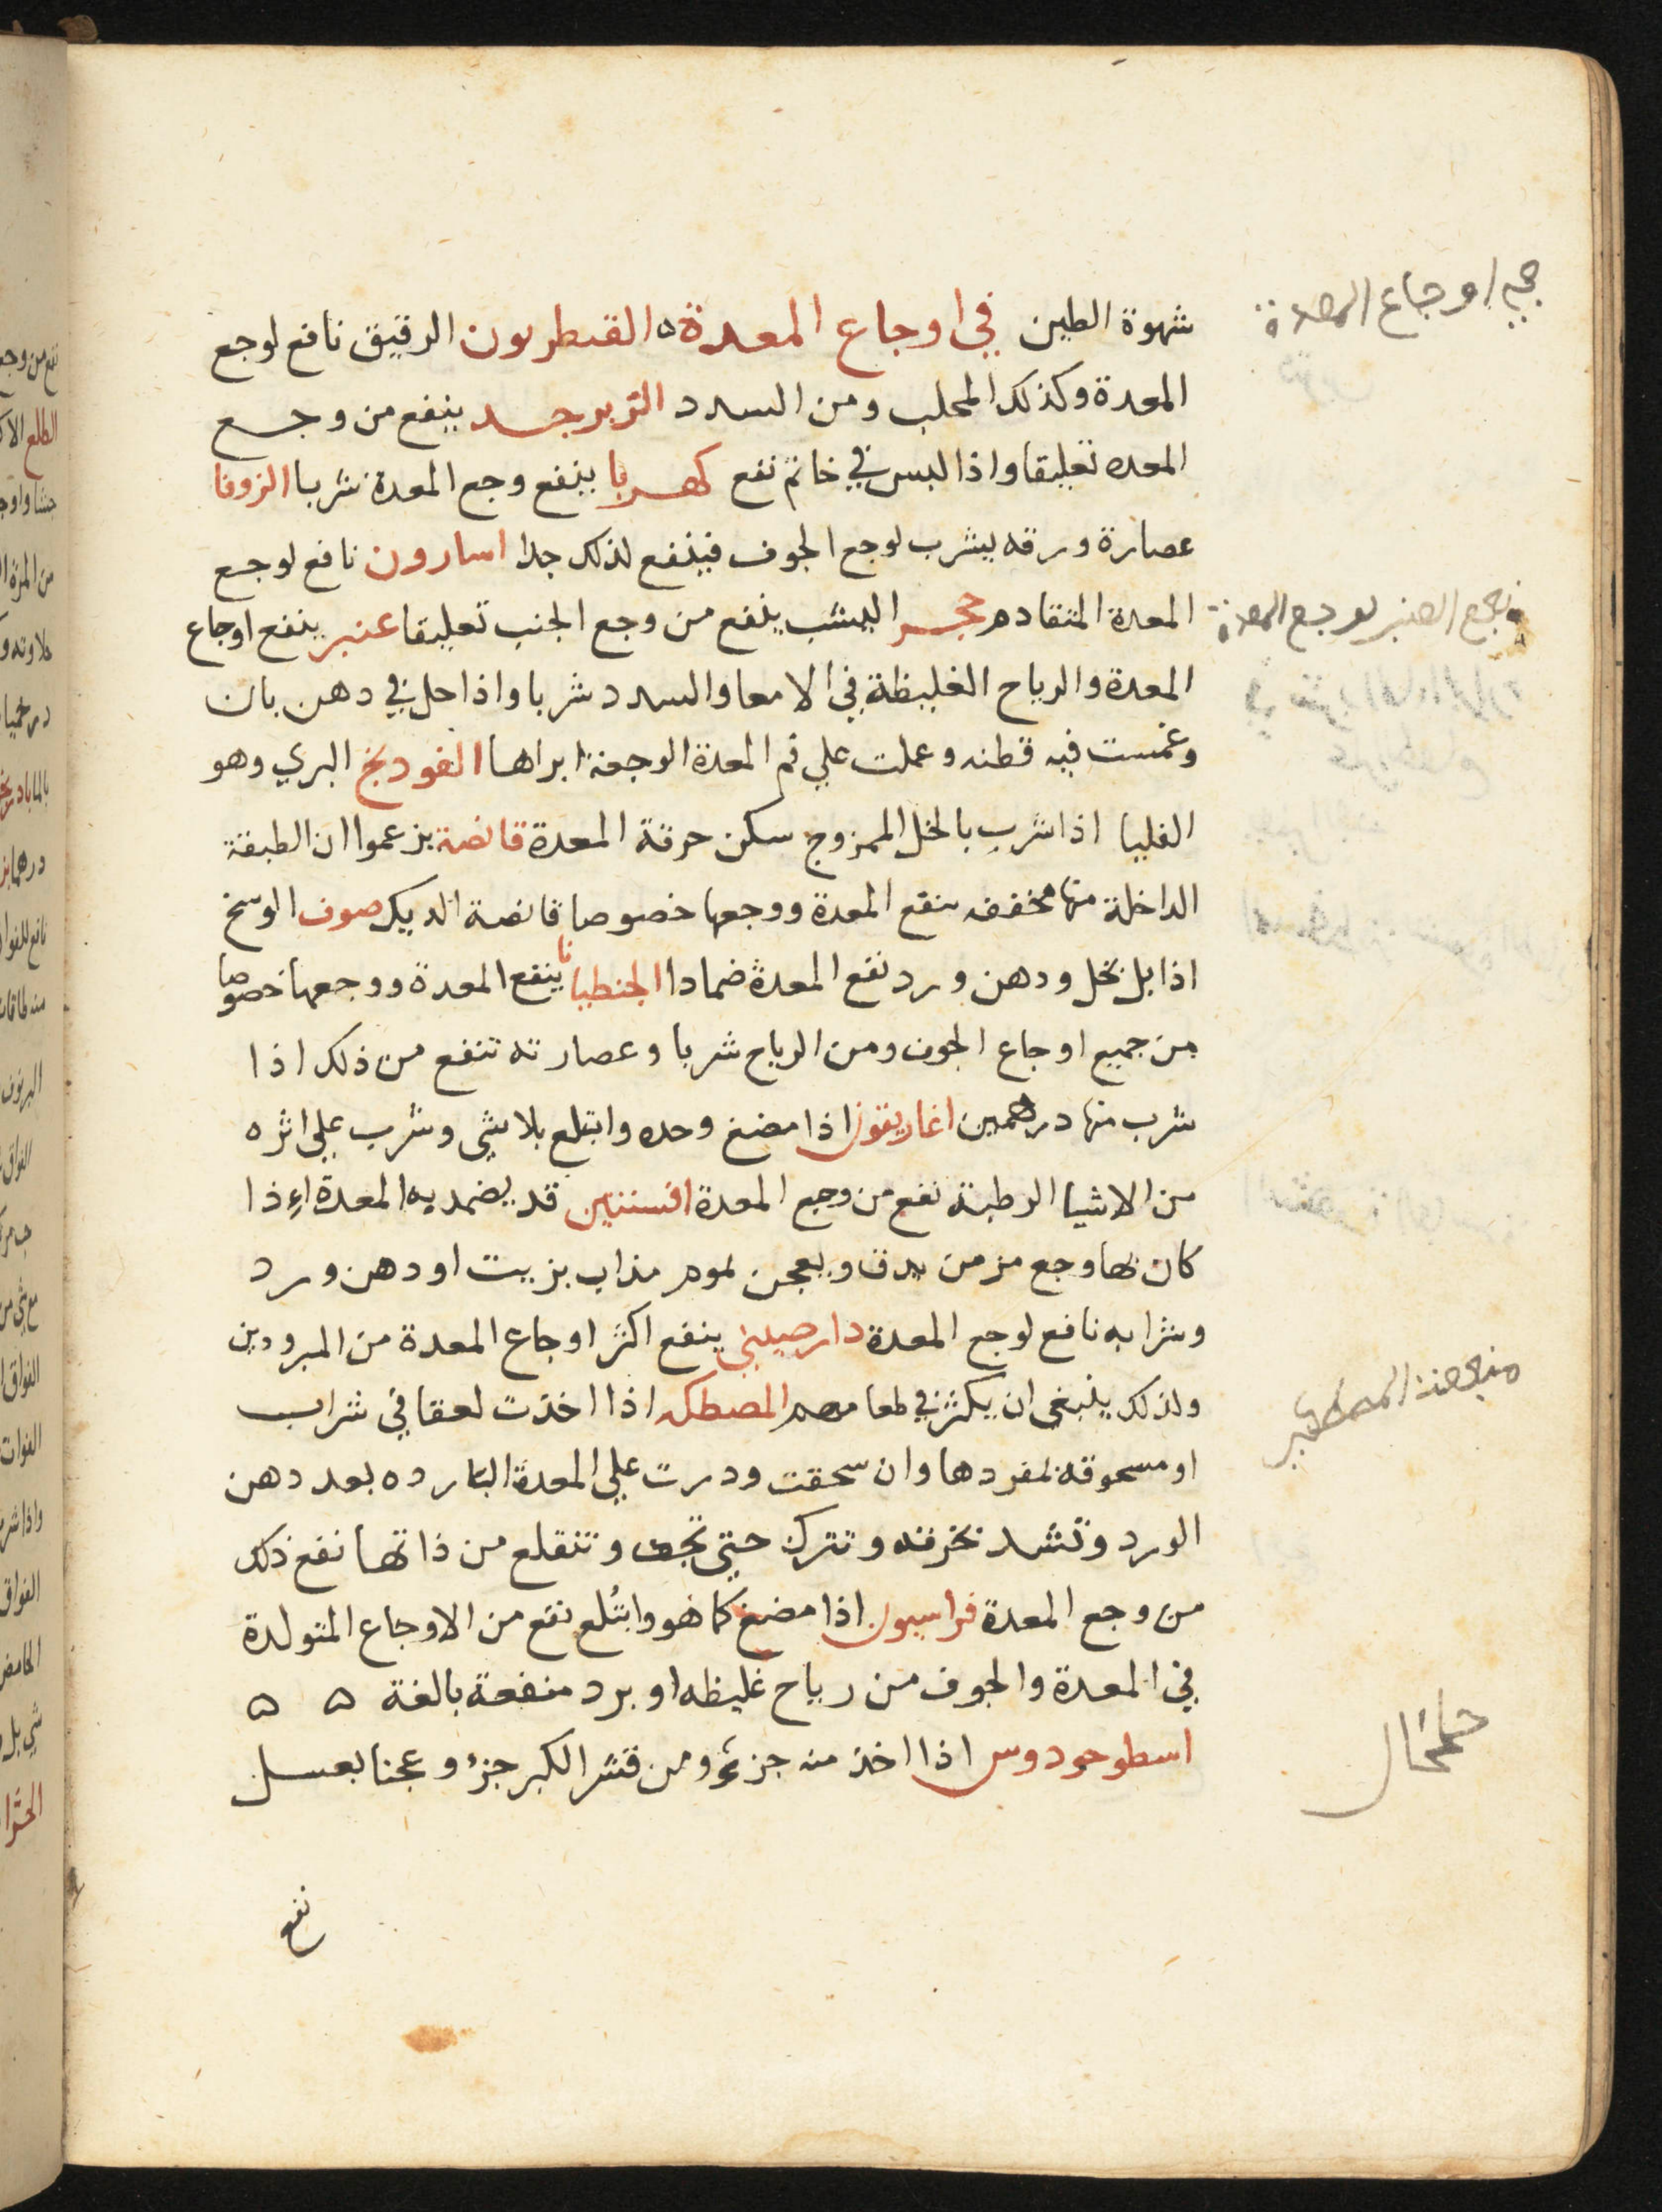 شهوة الطين في اوجاع المعدة ه القنطريون الرقيق نافع لوجع
المعدة وكذلك المحلب ومن السدد الزبرجد ينفع من وجع
المعده تعليقا واذا لبس في خاتم نفع كهربا ينفع وجع المعدة شربا الزوفا
عصارة ورقه يشرب لوجع الجوف فينفع لذلك جدا اسارون نافع لوجع
المعدة المتقادم حجر اليشب ينفع من وجع الجنب تعليقا عنبر ينفع اوجاع
المعدة والرياح الغليظة في الامعا والسدد شربا واذا حل في دهن بان
وغمست فيه قطنه وعملت علي فم المعدة الوجعة ابراها الفودنج البري وهو
الفليا اذا شرب بالخل الممزوج سكن حرقة المعدة قانصة يزعموا ان الطبقة
الداخلة منها مجففه ينفع المعدة ووجعها خصوصا قانصة الديك صوف الوسخ
اذا بل بخل ودهن ورد نفع المعدة ضمادا الجنطيانا ينفع المعدة ووجعها خصوصا
من جميع اوجاع الجوف ومن الرياح شربا وعصارته تنفع من ذلك اذا
شرب منها درهمين اغاريقون اذا مضغ وحده وابتلع بلا شي وشرب علي اثره
من الاشيا الرطبة نفع من وجع المعدة افسنتين قد يضمد به المعدة اذا
كان لها وجع مزمن يدق ويعجن بموم مذاب بزيت او دهن ورد
وشرابه نافع لوجع المعدة دارصيني ينفع اكثر اوجاع المعدة من المبرودين
ولذلك ينبغي ان يكثر في طعامهم المصطكه اذا اخذت لعقا في شراب
او مسحوقة بمفردها وان سحقت ودرت علي المعدة البارده بعد دهن
الورد وتشد بخرقه وتترك حتي تجف وتنقلع من ذاتها نفع ذلك
من وجع المعدة فراسيون اذا مضغ كما هو وابتُلع نفع من الاوجاع المتولدة
في المعدة والجوف من رياح غليظه او برد منفعة بالغة ه ه
اسطوخودوس اذا اخذ منه جزؤ ومن قشر الكبر جزؤ وعجنا بعسل
نفع
في اوجاع المعدة